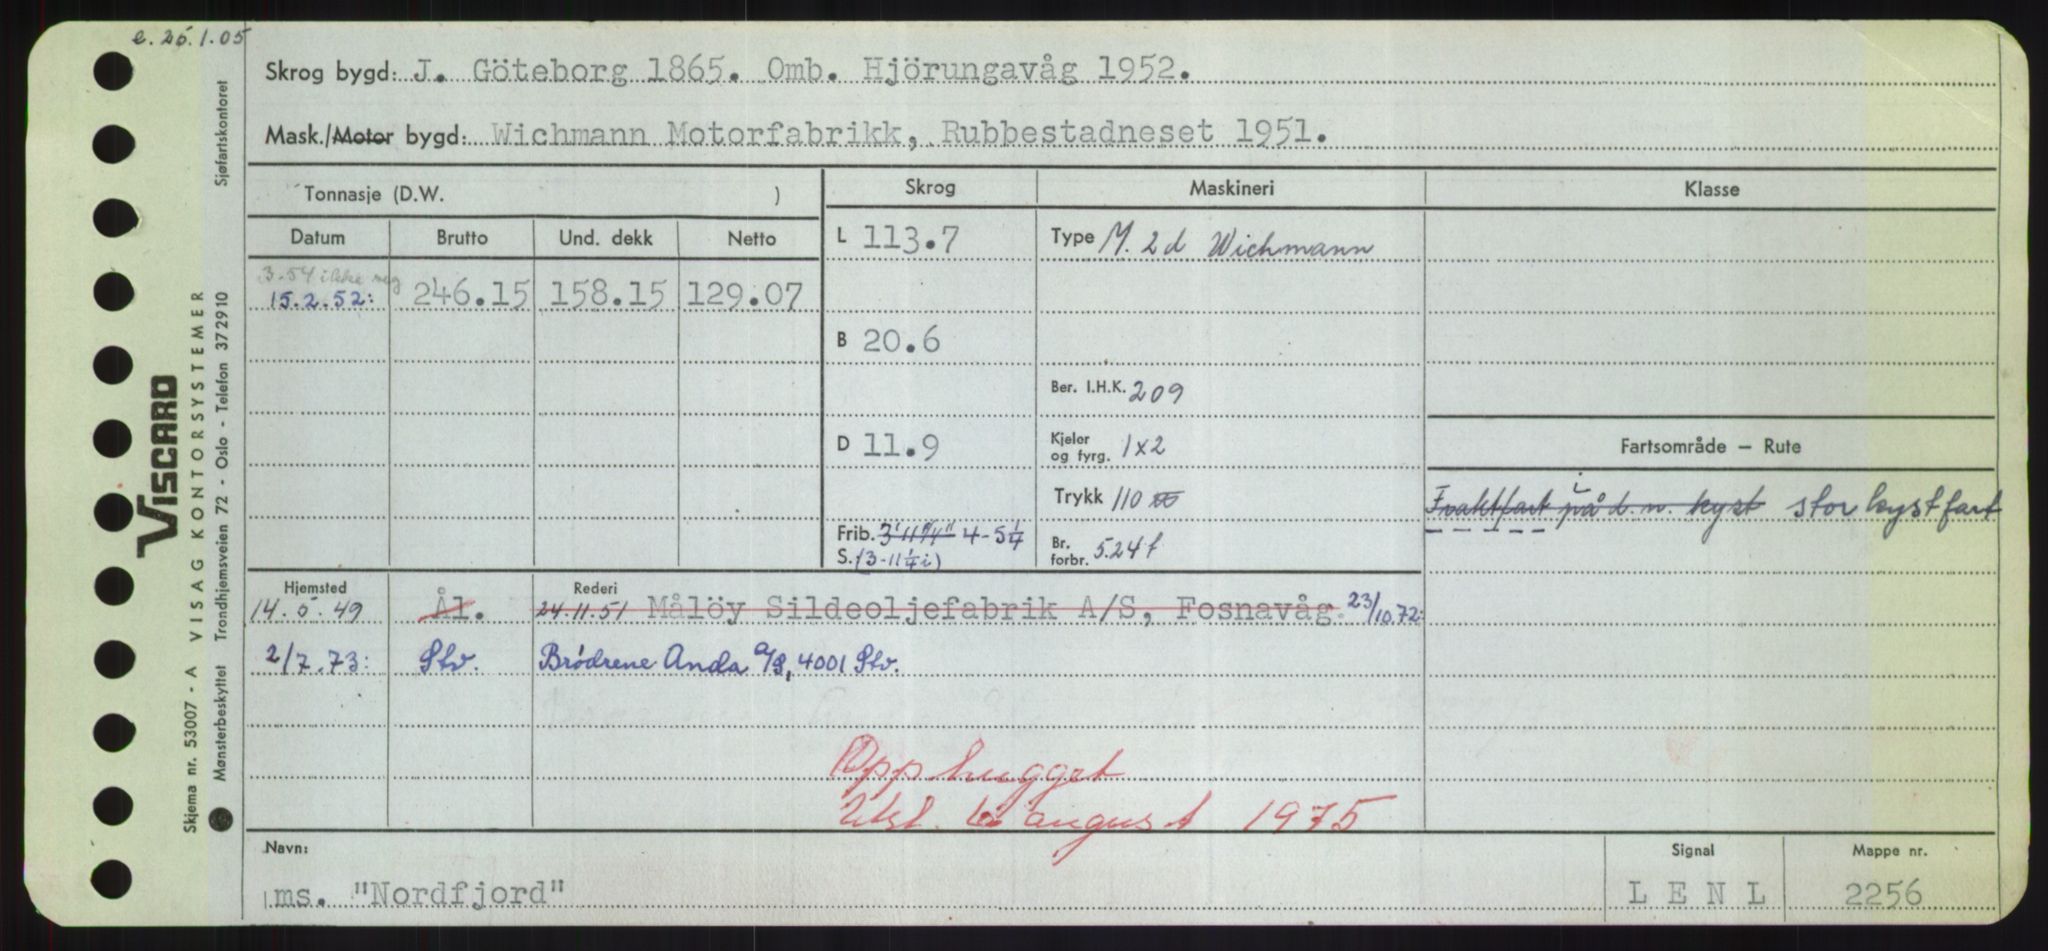 e. 26.1.05
Skrog bygd: J. Göteborg 1865. Omb. Hjörungavåg 1952.
Mask./Motor bygd: Wichmann Motorfabrikk, Rubbestadneset 1951.
Tonnasje (D.W. ) Skrog Maskineri Klasse
Datum Brutto Und. dekk Netto L 113.7 Type M. 2d Wichmann
3-54 ikke reg
15.2.52: 246.15 158.15 129.07
B 20.6
Ber. I.H.K. 209
D 11.9 Kjeler og fyrg. 1x2 Fartsområde — Rute
Trykk 110
Fraktfart i på d. n. kyst stor kystfart
Frib. 3'11¼" 4-5¼ Br. forbr. 5.24 t
S. (3-11¼ i)
Hjemsted Rederi
14.5.49 Ål. 24.11.51 Målöy Sildeoljefabrik A/S, Fosnavåg. 23/10.72:
2/7.73: Stv. Brödrene Anda A/S, 4001 Stv.
Opphugget
august 1975
Navn: Signal Mappe nr.
ms. "Nordfjord" L E N L 2256
VISCARD
Skjema nr. 53007 - A VISAG KONTORSYSTEMER
Mønsterbeskyttet Trondhjemsveien 72 - Oslo - Telefon 372910 Sjøfartskontoret